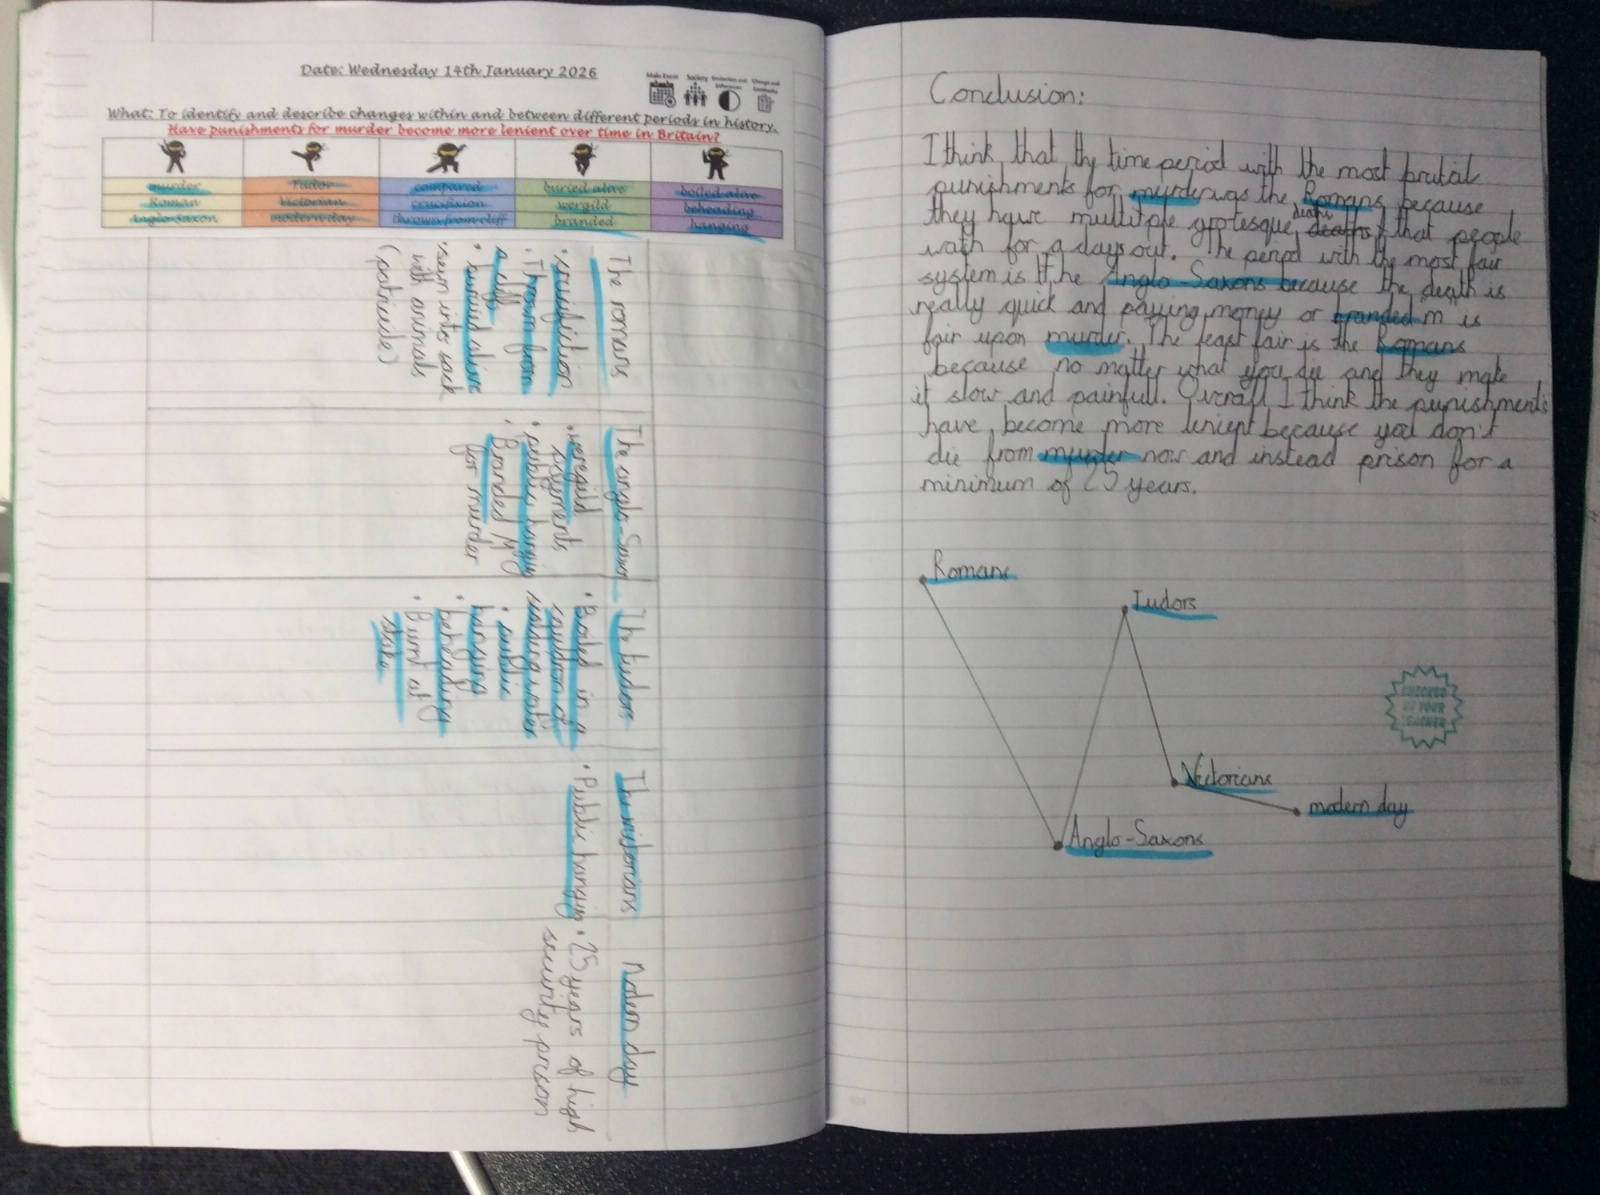 Date: Wednesday 14th January 2026
Make Sense
Society
Similarities and Differences
Change and Continuity
What: To identify and describe changes within and between different periods in history.
Have punishments for murder become more lenient over time in Britain?
murder Tudor compared buried alive boiled alive
Roman Victorian crucifixion wergild beheading
Anglo-Saxon modern day thrown from cliff branded hanging
The romans
• crucifiction
• Thrown from
a cliff
• burried alive
• sewn into sack
with animals
(patricide)
The anglo-Saxons
• weregild
payments
• public hanging
• Branded M
for murder
The tudors
• Boiled in a
cauldron of
boiling water
• public
hanging
• beheading
• Burnt at
stake
The victorians
• Public hanging
Modern day
• 25 years of high
security prison
Conclusion:
I think that thy time period with the most brutal
punishments for murder was the Romans because
they have multiple grotesque deaths deaths that people
wath for a days out. The period with the most fair
system is the Anglo-Saxons because the death is
really quick and paying money or branded m is
fair upon murder. The least fair is the Romans
because no matter what you die and they make
it slow and painfull. Overall I think the punishments
have become more lenient because you don't
die from murder now and instead prison for a
minimum of 25 years.
Romans
Tudors
Victorians
modern day
Anglo-Saxons
CHECKED
BY YOUR
TEACHER